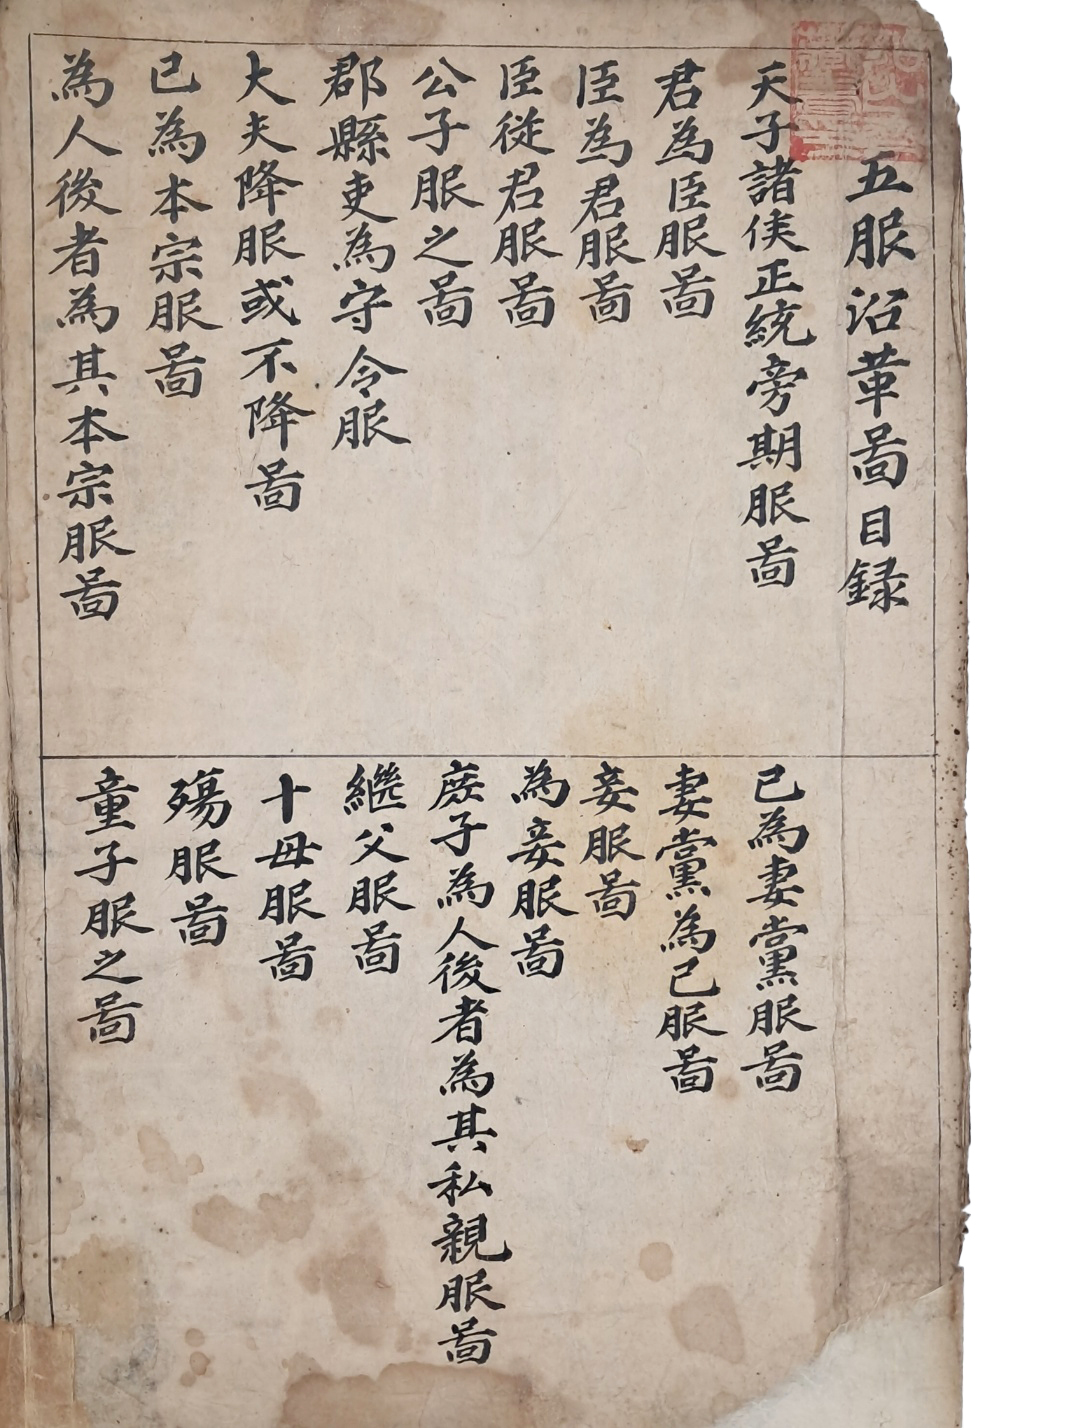 五服沿革啚目録
天子諸侯正統旁期服啚
君為臣服啚
臣為君服啚
臣從君服啚
公子服之啚
郡縣吏為守令服
大夫降服或不降啚
己為本宗服啚
為人後者為其本宗服啚
己為妻黨服啚
妻黨為己服啚
妾服啚
為妾服啚
庶子為人後者為其私親服啚
繼父服啚
十母服啚
殤服啚
童子服之啚